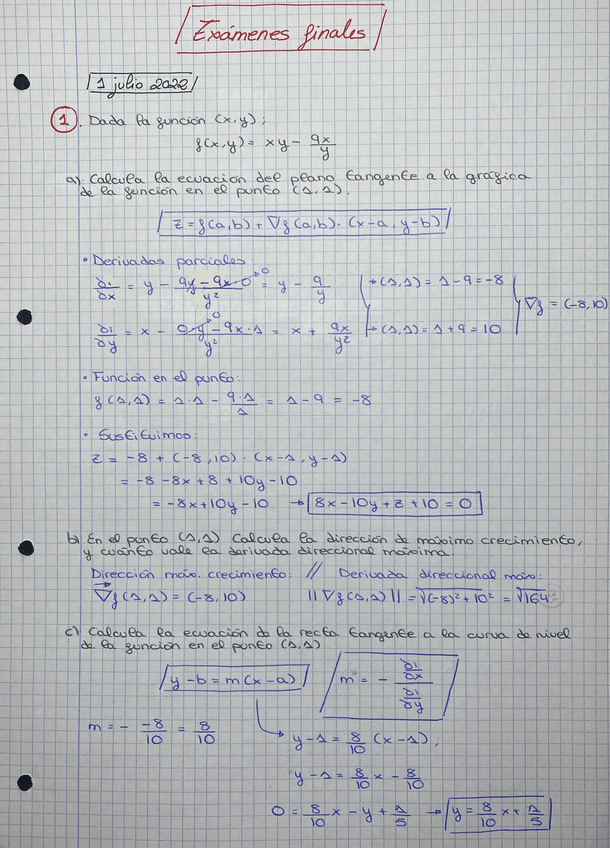 Exámenes finales
1 julio 2022
1. Dada la función (x,y):
f(x,y) = xy - 9x/y
a) Calcula la ecuación del plano tangente a la gráfica
de la función en el punto (1,1).
z = f(a,b) + ∇f(a,b) · (x-a, y-b)
• Derivadas parciales:
∂f/∂x = y - (9y - 9x·0)/y² = y - 9/y → (1,1) = 1-9 = -8
∂f/∂y = x - (0·y - 9x·1)/y² = x + 9x/y² → (1,1) = 1+9 = 10
∇f = (-8,10)
• Función en el punto:
f(1,1) = 1·1 - 9·1/1 = 1-9 = -8
• Sustituimos:
z = -8 + (-8,10) · (x-1, y-1)
= -8 -8x + 8 + 10y - 10
= -8x + 10y - 10 → 8x - 10y + z + 10 = 0
b) En el punto (1,1) calcula la dirección de máximo crecimiento,
y cuánto vale la derivada direccional máxima.
Dirección máx. crecimiento: // Derivada direccional máx:
∇f(1,1) = (-8,10) ||∇f(1,1)|| = √(-8)²+10² = √164
c) Calcula la ecuación de la recta tangente a la curva de nivel
de la función en el punto (1,1)
y-b = m(x-a) m = - (∂f/∂x)/(∂f/∂y)
m = - -8/10 = 8/10
y-1 = 8/10 (x-1),
y-1 = 8/10 x - 8/10
0 = 8/10 x - y + 1/5 → y = 8/10 x + 1/5